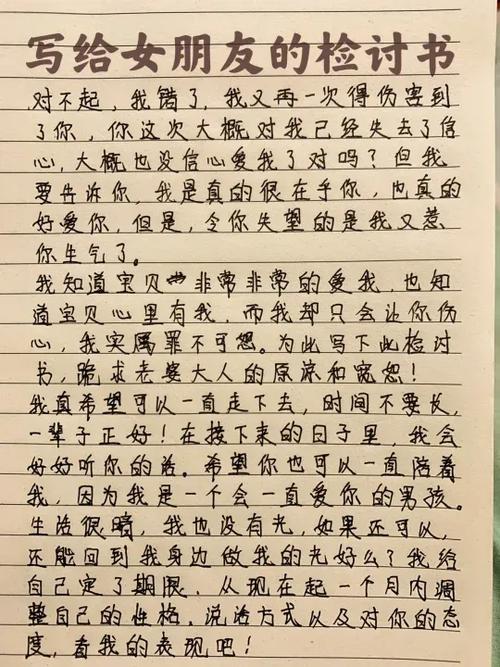 写给女朋友的检讨书
对不起，我错了，我又再一次得伤害到
了你，你这次大概对我已经失去了信
心，大概也没信心爱我了对吗？但我
要告诉你，我是真的很在乎你，也真的
好爱你，但是，令你失望的是我又惹
你生气了。
我知道宝贝 非常非常的爱我，也知
道宝贝心里有我，而我却只会让你伤
心，我实属罪不可恕。为此写下此检讨
书，跪求老婆大人的原谅和宽恕！
我真希望可以一直走下去，时间不要长，
一辈子正好！在接下来的日子里，我会
好好听你的话。希望你也可以一直陪着
我，因为我是一个会一直爱你的男孩。
生活很暗，我也没有光，如果还可以，
还能回到我身边做我的光好么？我给
自己定了期限，从现在起一个月内调
整自己的性格，说话方式以及对你的态
度，看我的表现吧！